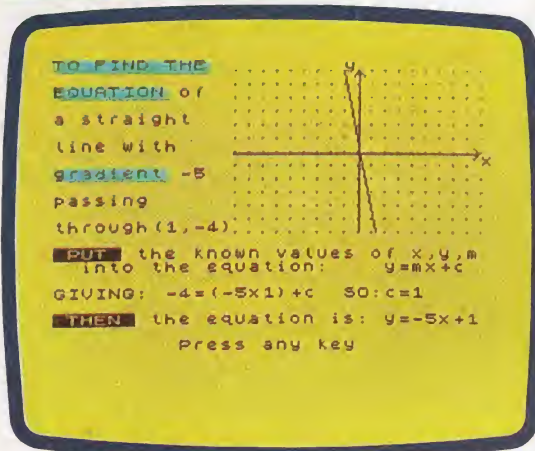 TO FIND THE
EQUATION of
a straight
line with
gradient -5
passing
through(1,-4)
y
x
PUT the known values of x,y,m
into the equation: y=mx+c
GIVING: -4=(-5x1)+c SO:c=1
THEN the equation is: y=-5x+1
Press any key